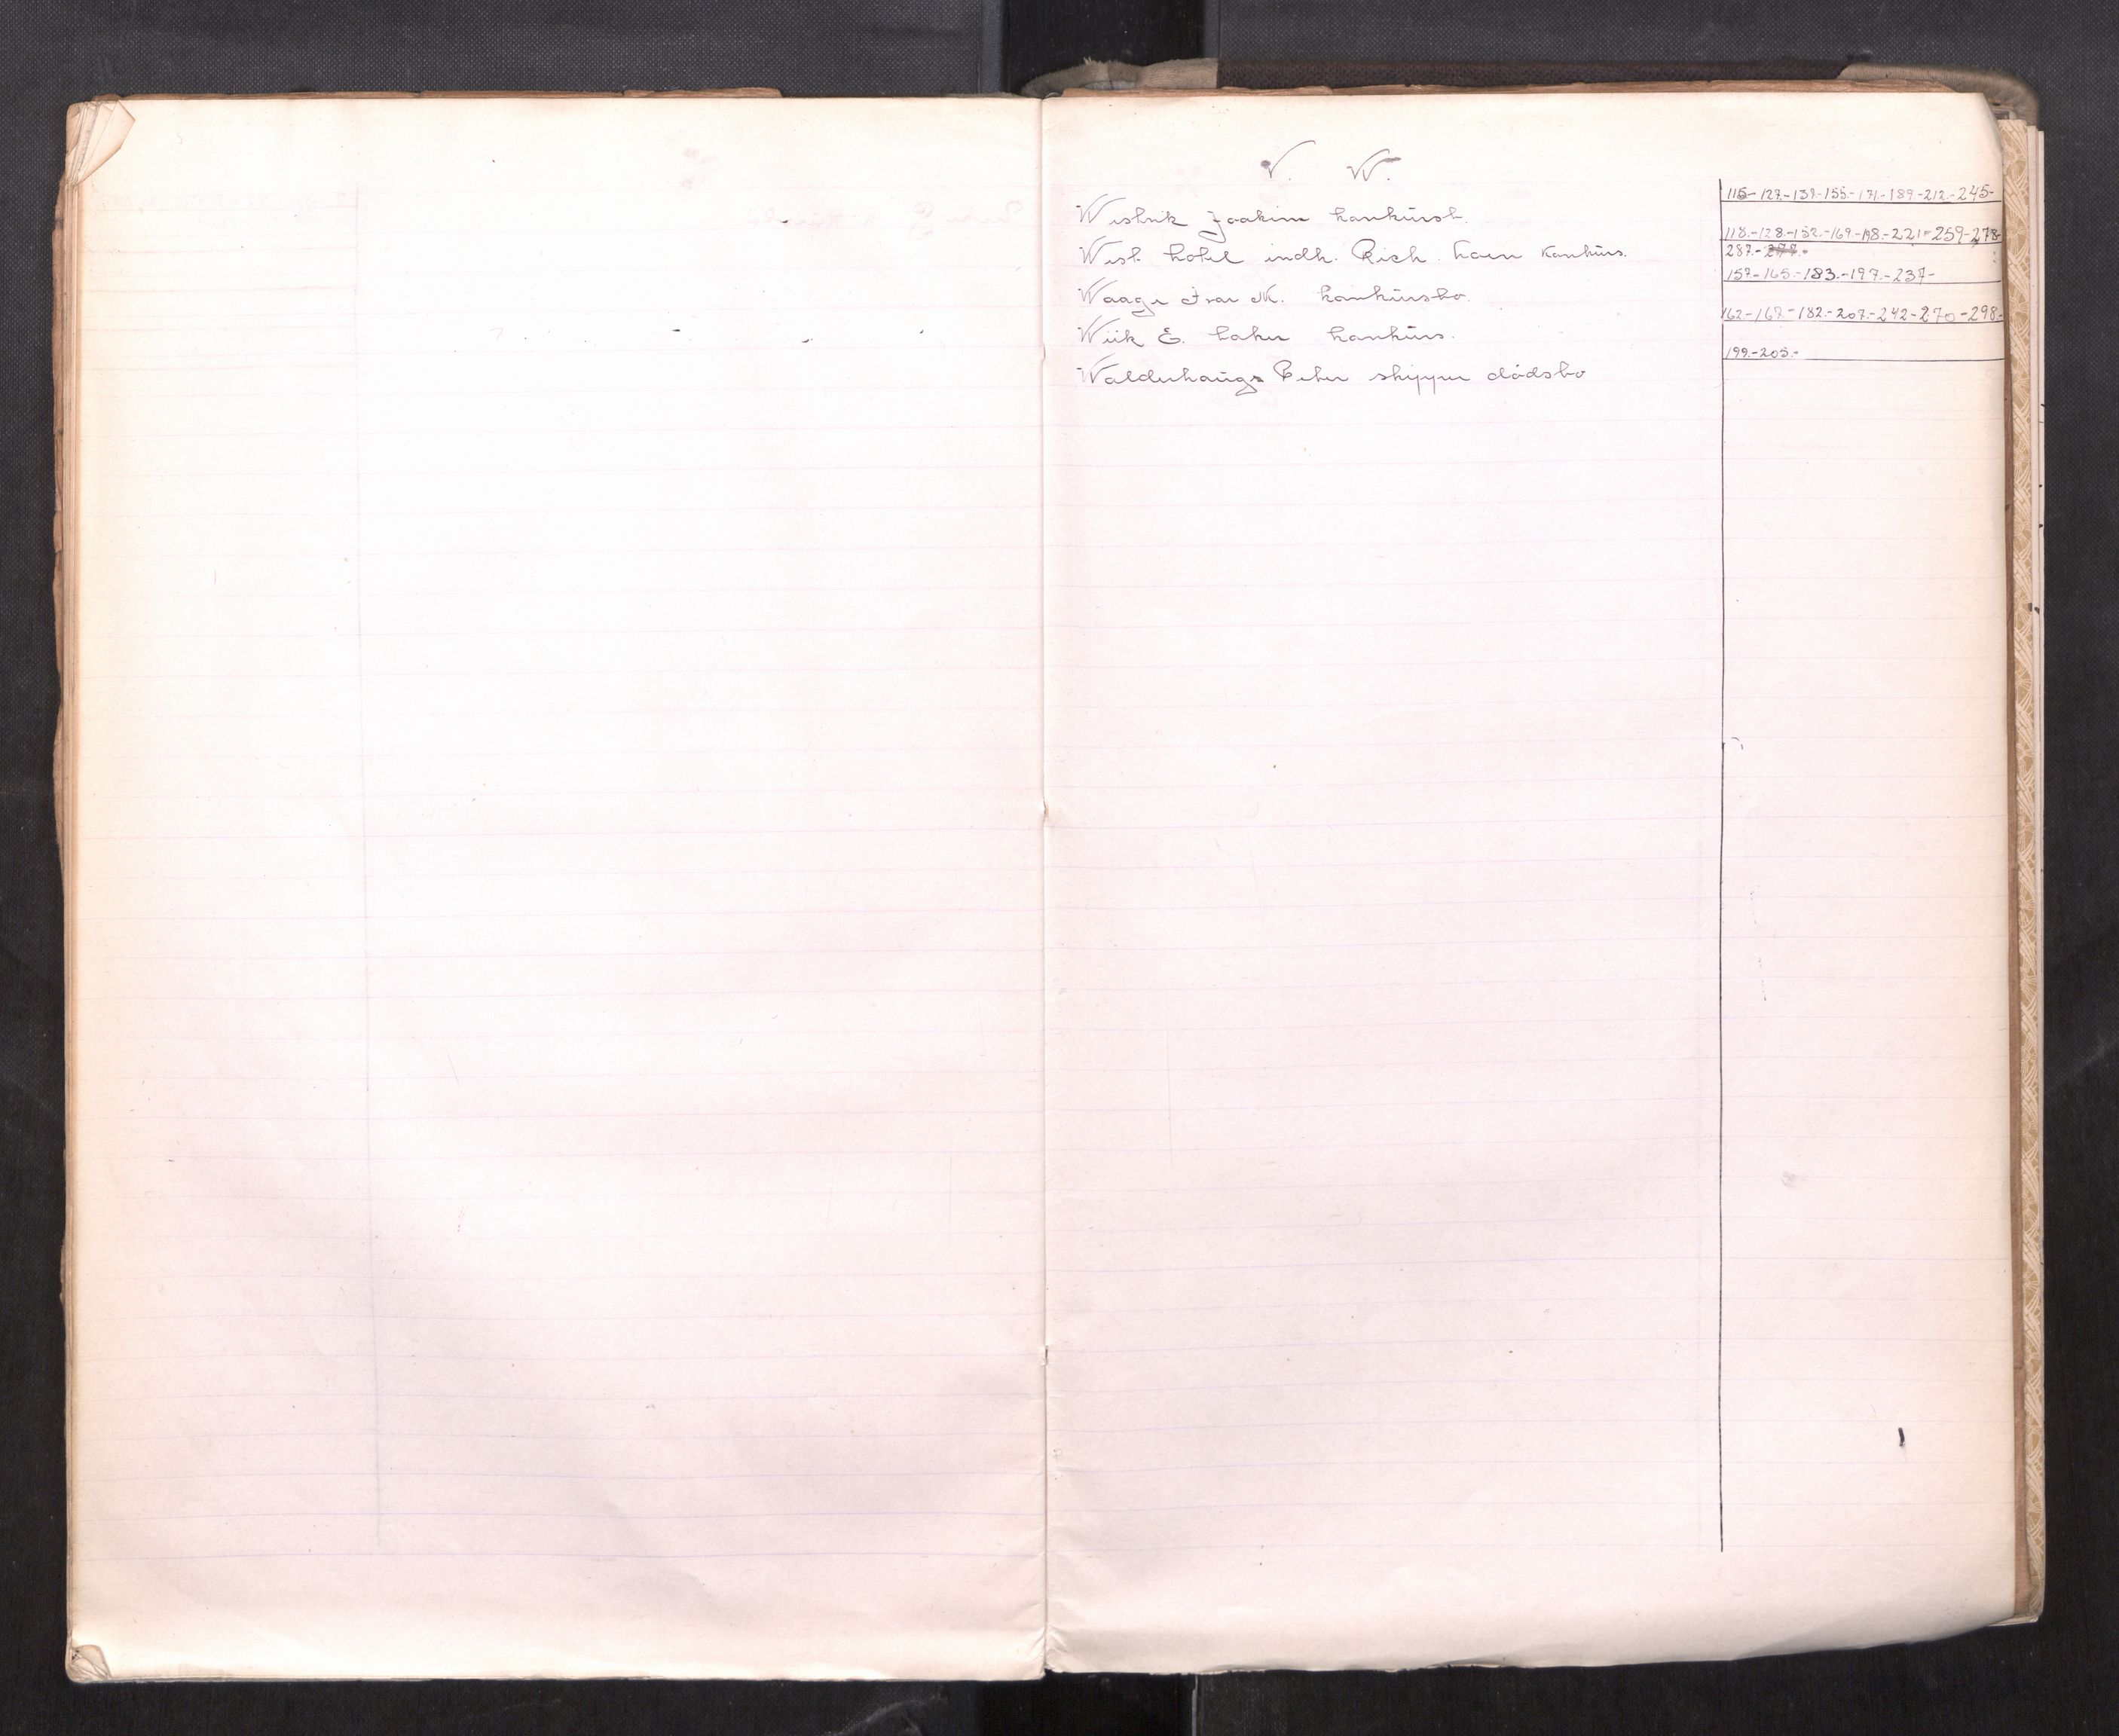 V. W.
115-127-139-155-171-189-212-245-
Westrik Joakim konkursb.
118-128-152-169-198-221-259-278-
West hotel indh. Rich. Coen Konkurs.
287-277-
157-165-183-197-237-
Waage Ivar M. konkursbo.
162-168-182-207-242-270-298-
Wiik E. baker konkurs.
199-203-
Walderhaugs Peter skipper dødsbo